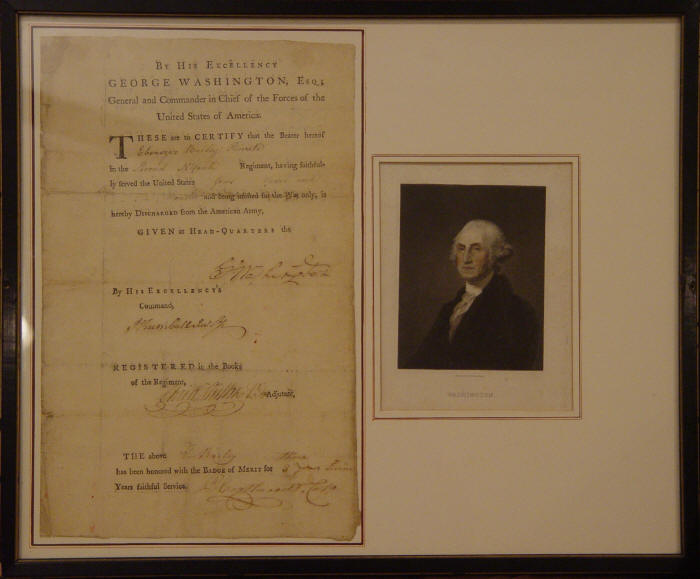 BY HIS EXCELLENCY
GEORGE WASHINGTON, ESQ;
General and Commander in Chief of the Forces of the
United States of America.
THESE are to CERTIFY that the Bearer hereof
Ebenezer Baily
in the Regiment, having faithful-
ly served the United States four years and
and being inlisted for the War only, is
hereby DISCHARGED from the American Army,
GIVEN at HEAD-QUARTERS the
G Washington
BY HIS EXCELLENCY'S
Command,
J Trumbull
REGISTERED in the Books
of the Regiment,
Adjutant,
THE above E Baily
has been honored with the BADGE of MERIT for 3 Years
Years faithful Service.
WASHINGTON